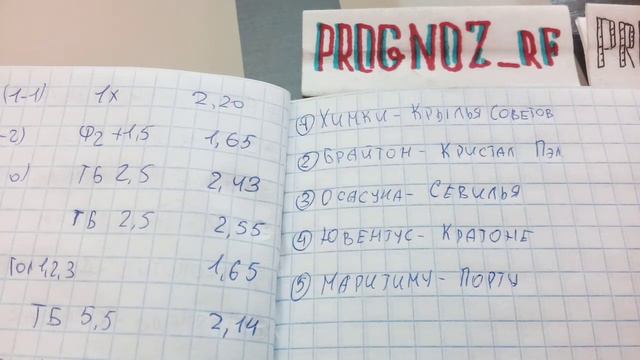 PROGNOZ_RF
PR
(1-1) 1X 2,20
-2) Ф2 +1,5 1,65
0) ТБ 2,5 2,43
ТБ 2,5 2,55
Гол 1,2,3 1,65
ТБ 5,5 2,14
① ХИМКИ - КРЫЛЬЯ СОВЕТОВ
② БРАЙТОН - КРИСТАЛ ПЭЛ
③ ОСАСУНА - СЕВИЛЬЯ
④ ЮВЕНТУС - КРАТОНЕ
⑤ МАРИТИМУ - ПОРТУ